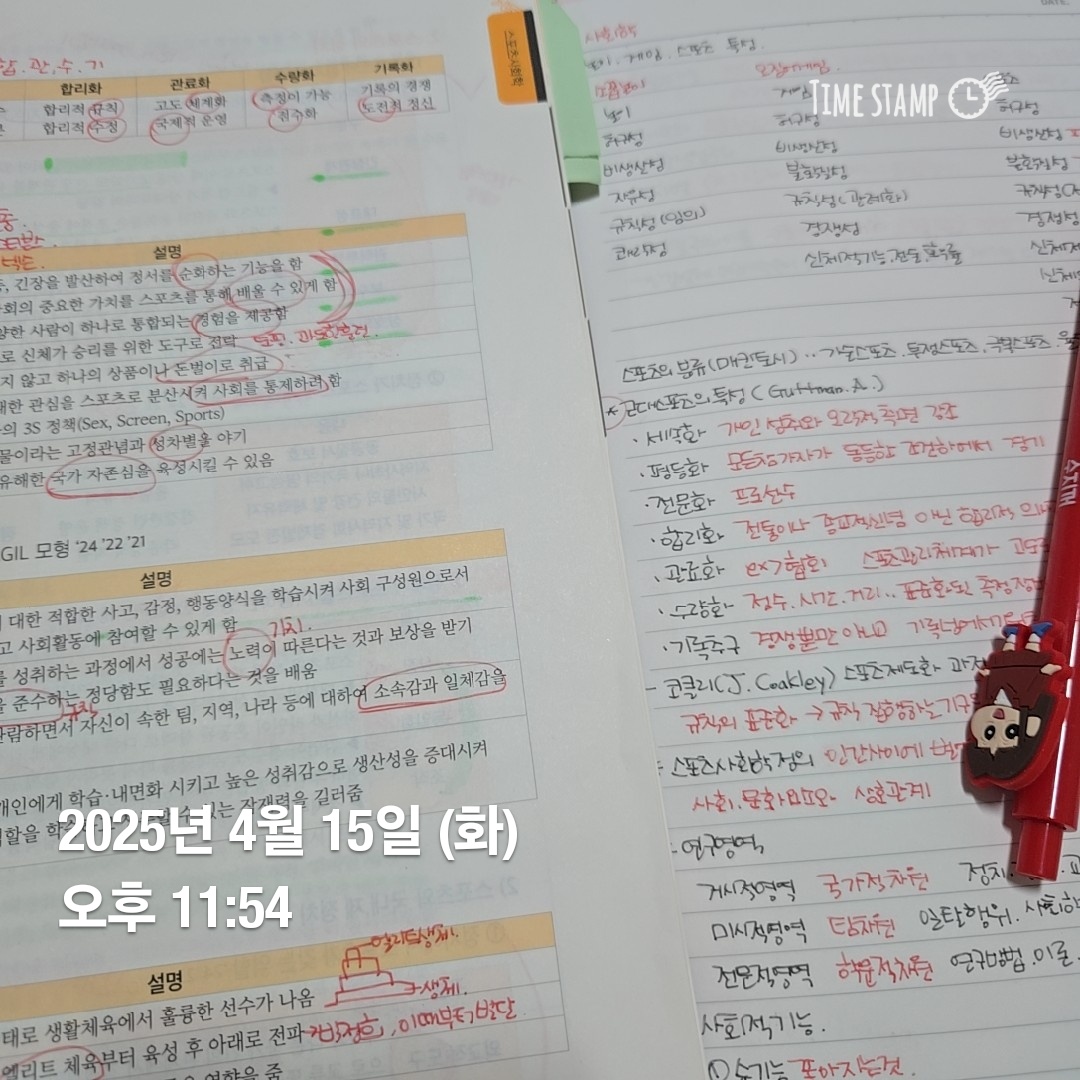 합.관.수.기
합리화 관료화 수량화 기록화
합리적 규칙 고도 체계화 측정이 가능 기록의 경쟁
합리적 수정 국제적 운영 점수화 도전적 정신
스포츠사회학
설명
긴장을 발산하여 정서를 순화하는 기능을 함
사회의 중요한 가치를 스포츠를 통해 배울 수 있게 함
양한 사람이 하나로 통합되는 경험을 제공함
로 신체가 승리를 위한 도구로 전락 도핑. 과도한훈련.
지 않고 하나의 상품이나 돈벌이로 취급
대한 관심을 스포츠로 분산시켜 사회를 통제하려 함
의 3S 정책(Sex, Screen, Sports)
물이라는 고정관념과 성차별을 야기
유해한 국가 자존심을 육성시킬 수 있음
AGIL 모형 '24 '22 '21
설명
대한 적합한 사고, 감정, 행동양식을 학습시켜 사회 구성원으로서
고 사회활동에 참여할 수 있게 함
가치.
를 성취하는 과정에서 성공에는 노력이 따른다는 것과 보상을 받기
을 준수하는 정당함도 필요하다는 것을 배움
규칙
관람하면서 자신이 속한 팀, 지역, 나라 등에 대하여 소속감과 일체감을
개인에게 학습·내면화 시키고 높은 성취감으로 생산성을 증대시켜
있는 잠재력을 길러줌
설명
엘리트체제.
생체.
태로 생활체육에서 훌륭한 선수가 나옴
엘리트 체육부터 육성 후 아래로 전파 → 박정희, 이때부터 발달
영향을 줌
DATE.
사회학
놀이. 게임. 스포츠 특성.
놀이 게임
허구성 허구성 허구성
비생산성 비생산성 비생산성
자유성 불확실성 불확실성
규칙성(임의) 규칙성(관례화) 규칙성
쾌락성 경쟁성 경쟁성
신체적기능, 전술, 확률
스포츠의 분류(매킨토시) .. 기술스포츠. 투쟁스포츠. 극복스포츠
* 근대스포츠의 특성 (Guttman. A.)
· 세속화 개인 성취와 오락적 측면 강조
· 평등화 모든참가자가 동등한 조건하에서 경기
· 전문화 프로선수
· 합리화 전통이나 종교적신념 아닌 합리적
· 관료화 ex> 협회 스포츠관리체계가
· 수량화 점수. 시간. 거리.. 표준화된 측정
· 기록추구 경쟁뿐만 아니라
- 코클리(J. Coakley) 스포츠제도화 과정
규칙의 표준화 → 규칙 집행하는기구
- 스포츠사회학 정의 인간사이에
사회. 문화 상호관계
- 연구영역
거시적영역 국가적차원 정치.
미시적영역 팀차원 일탈행위.
전문적영역 학문적차원 연구방법. 이론.
사회적기능.
① 순기능 좋아지는것
TIME STAMP
2025년 4월 15일 (화)
오후 11:54